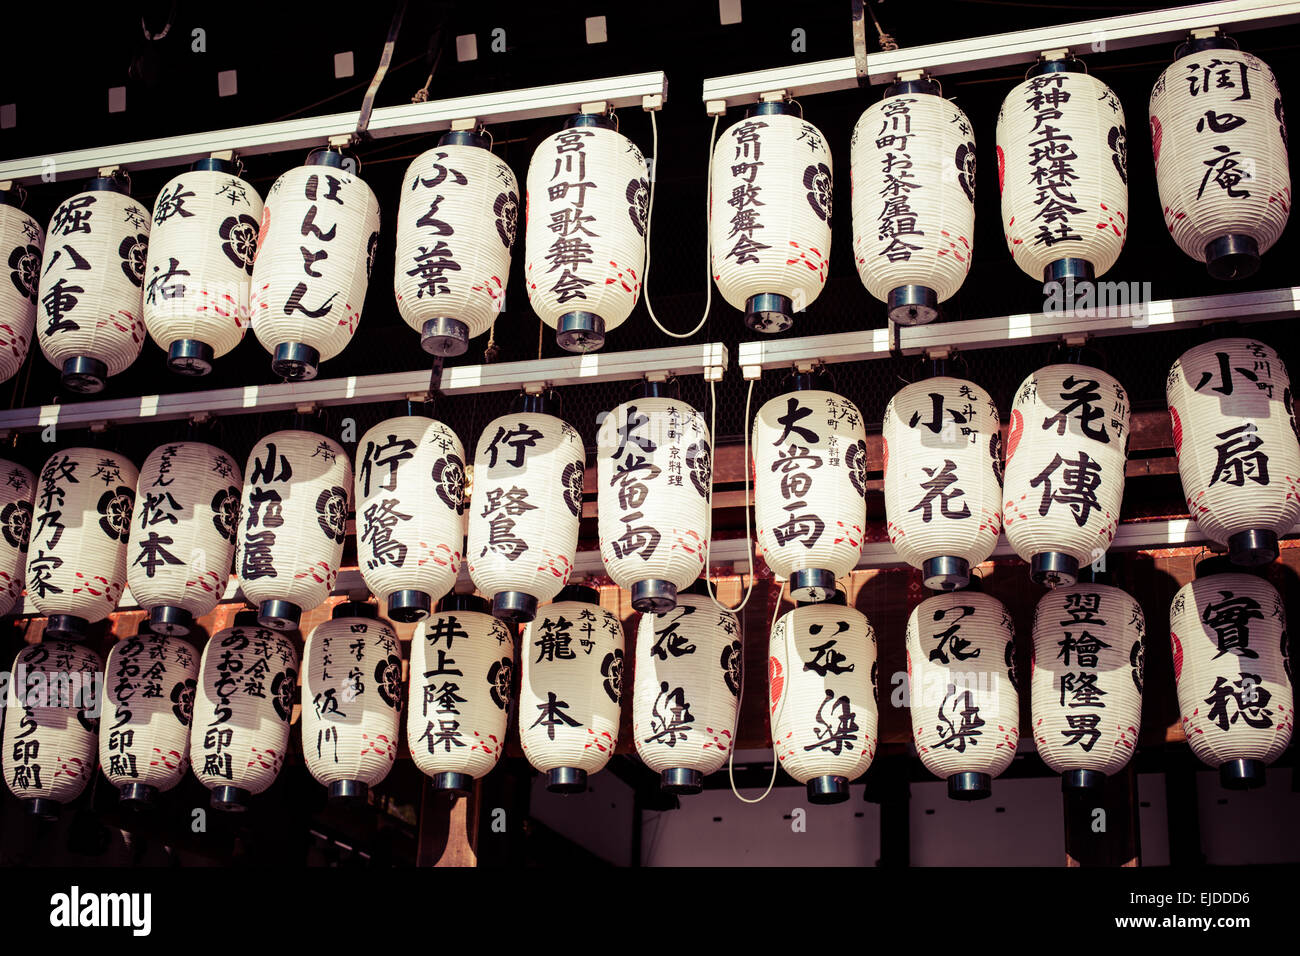 奉
堀八重
奉
敏祐
ぼんとん
ふく葉
宮川町歌舞会
宮川町歌舞会
宮川町お茶屋組合
奉
新神戸土地株式会社
潤心庵
奉
乃家
奉
ぎをん
松本
奉
小
屋
奉
佇鷺
佇鷺
奉
先斗町
京料理
大當両
奉
先斗町
京料理
大當両
先斗町
小花
宮川町
花傳
宮川町
小扇
株式会社
あおぞら印刷
奉
株式会社
あおぞら印刷
奉
株式会社
あおぞら印刷
四季富
ぎおん
阪川
奉
井上隆保
先斗町
籠本
花梁
花梁
花梁
奉
翌檜隆男
實穂
alamy
Image ID: EJDDD6
www.alamy.com